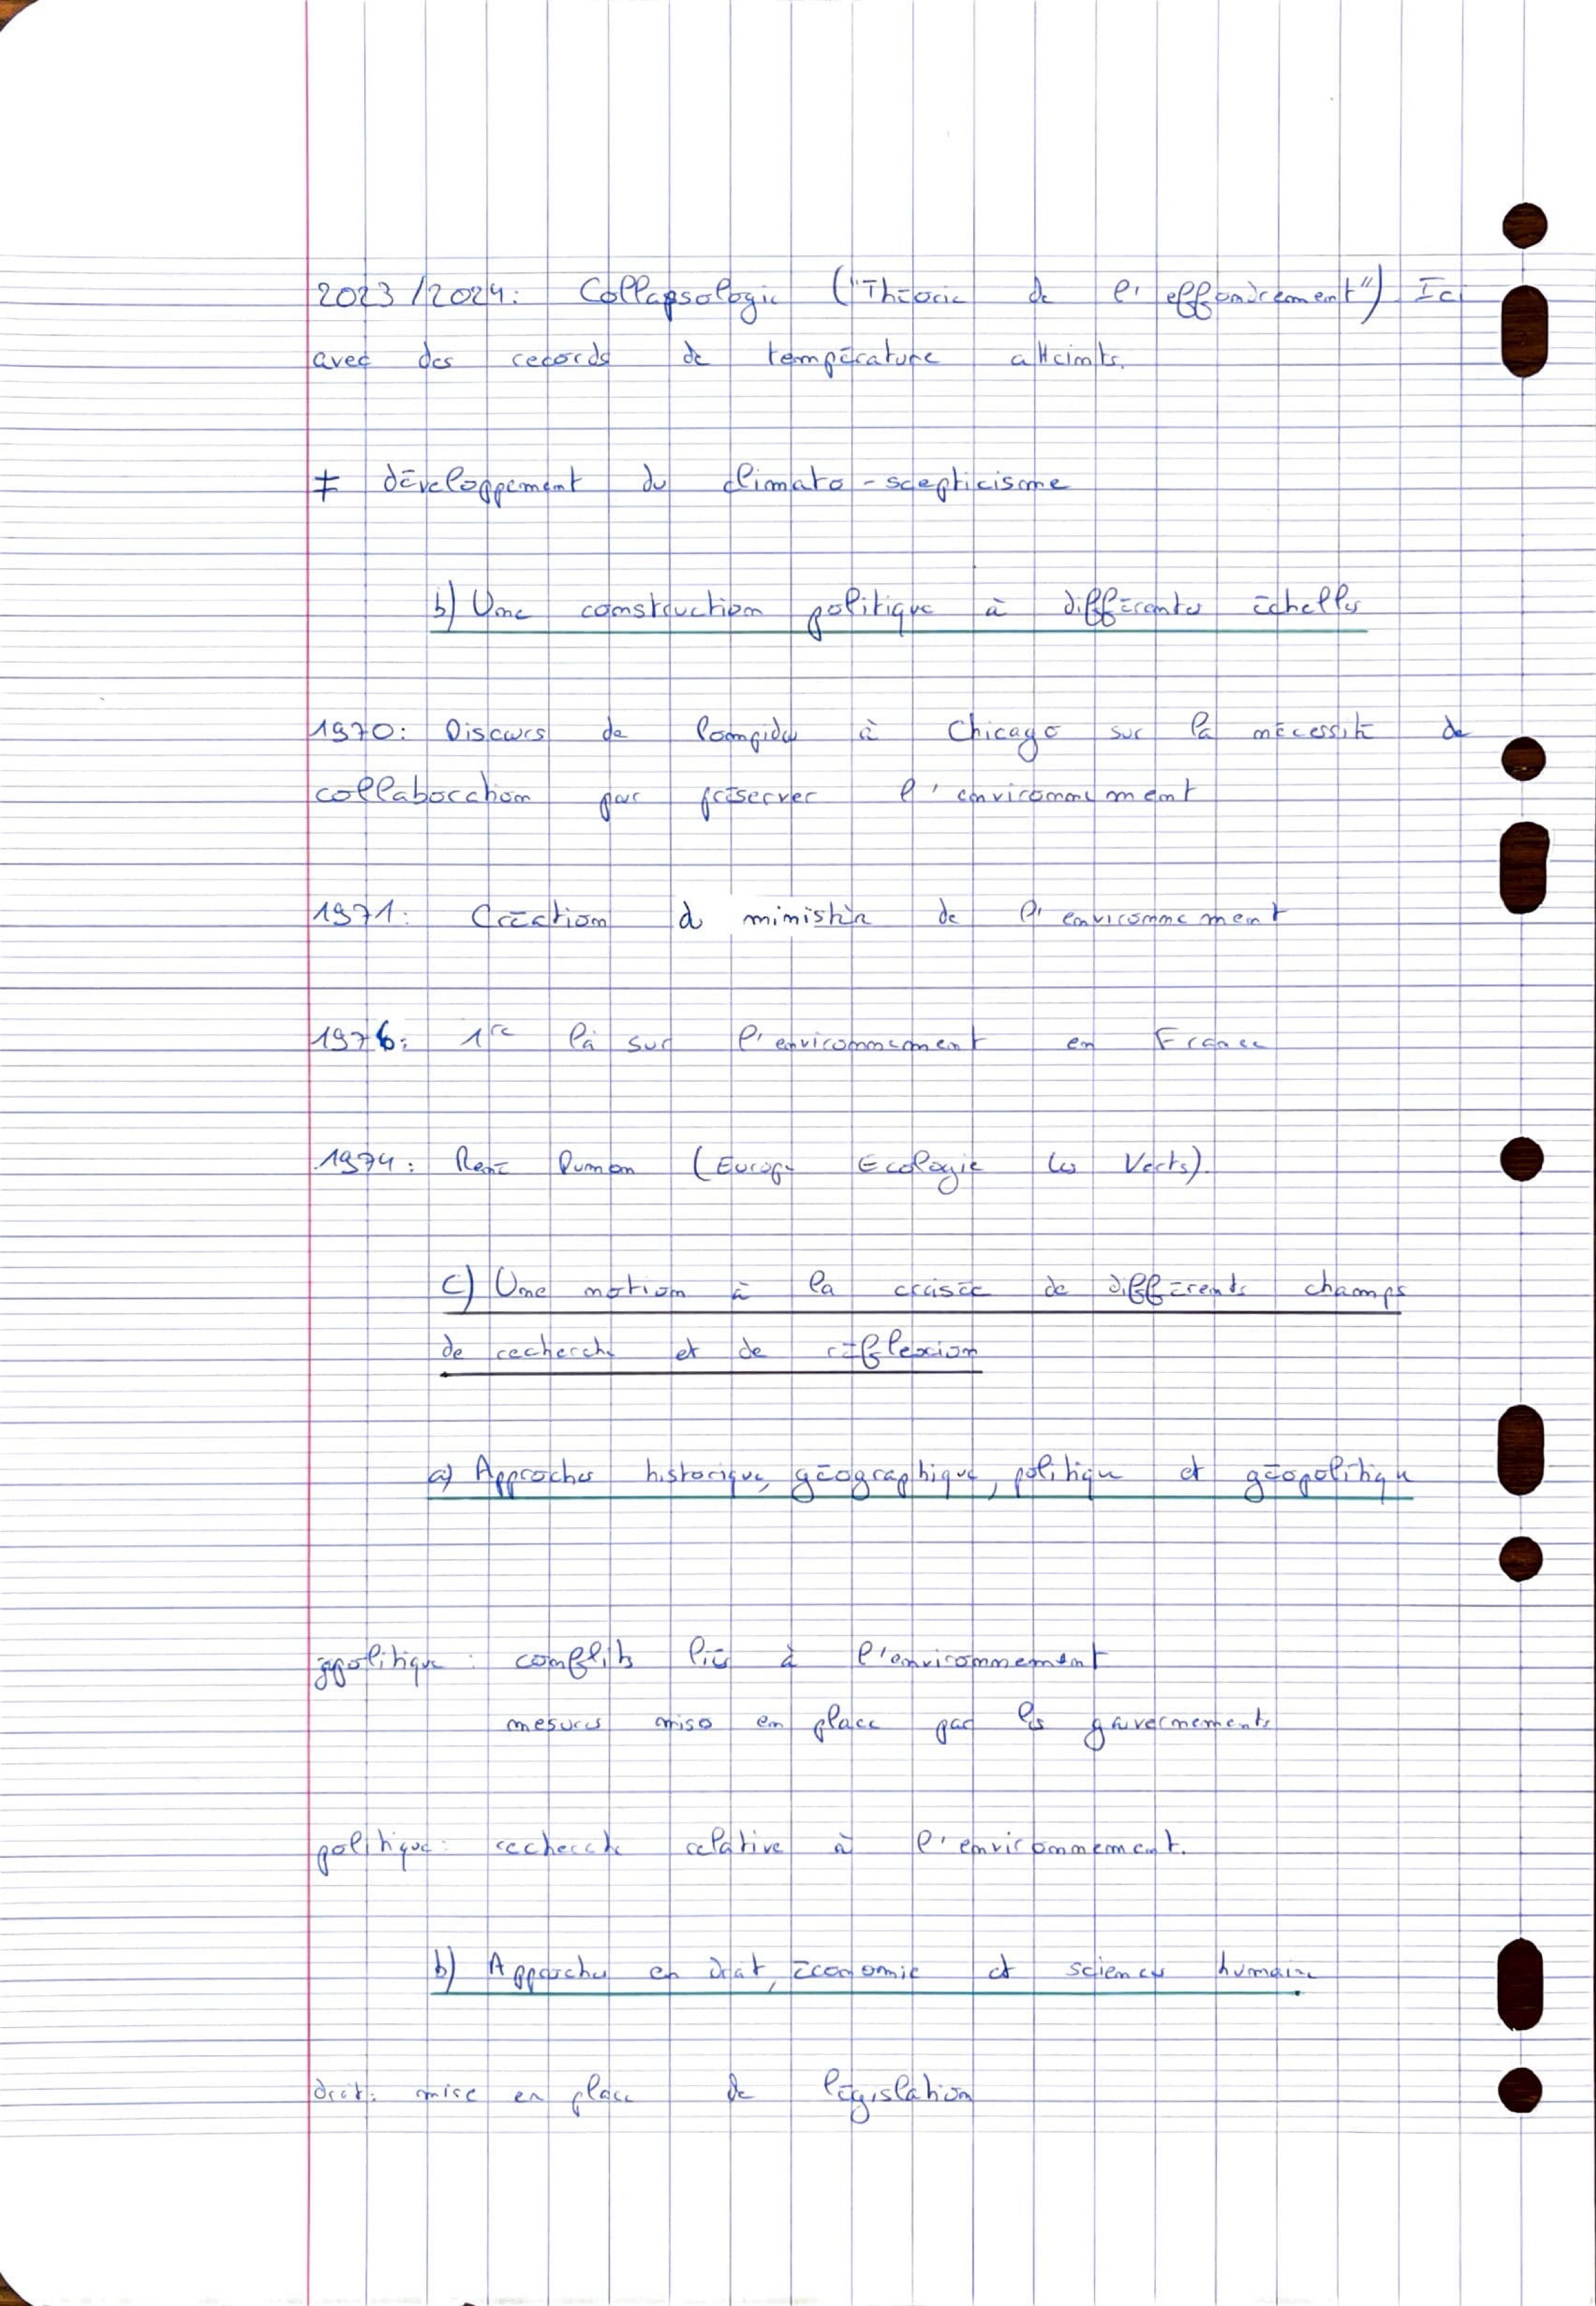 2023/2024: Collapsologie ("Théorie de l'effondrement") Ici
avec des records de température atteints.
≠ développement du climato-scepticisme
b) Une construction politique à différentes échelles
1970: Discours de Pompidou à Chicago sur la nécessité de
collaboration pour préserver l'environnement
1971: Création du ministère de l'environnement
1976: 1re loi sur l'environnement en France
1974: René Dumon (Europe Ecologie les Verts).
c) Une notion à la croisée de différents champs
de recherche et de réflexion
a) Approches historique, géographique, politique et géopolitique
géopolitique: conflits liés à l'environnement
mesures mises en place par les gouvernements
politique: recherche relative à l'environnement.
b) Approches en droit, économie et sciences humaines
droit: mise en place de législation